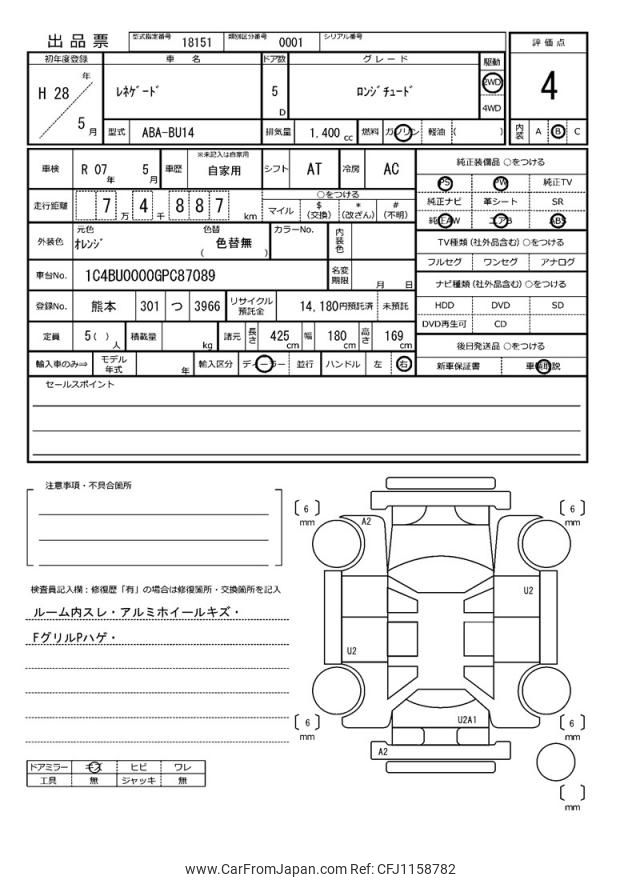 出品票 型式指定番号 18151 類別区分番号 0001 シリアル番号
評価点
4
内装 A B C
初年度登録 車名 ドア数 グレード 駆動
H 28 年 5 月 ﾚﾈｹﾞｰﾄﾞ 5 D ﾛﾝｼﾞﾁｭｰﾄﾞ 2WD 4WD
型式 ABA-BU14 排気量 1,400 cc 燃料 ガソリン 軽油 ( )
車検 R 07 年 5 月 車歴 ※未記入は自家用 自家用 シフト AT 冷房 AC
走行距離 7 万 4 千 8 8 7 km ○をつける
マイル $ (交換) * (改ざん) # (不明)
外装色 元色 ｵﾚﾝｼﾞ 色替 ( 色替無 ) カラーNo. 内装色
車台No. 1C4BU0000GPC87089 名変期限 月 日
登録No. 熊本 301 つ 3966 リサイクル預託金 14,180円預託済 未預託
定員 5( ) 人 積載量 kg 諸元 長さ 425 cm 幅 180 cm 高さ 169 cm
輸入車のみ⇒ モデル年式 年 輸入区分 ディーラー 並行 ハンドル 左 右
純正装備品 ○をつける
PS PW 純正TV
純正ナビ 革シート SR
純正AW エアB ABS
TV種類 (社外品含む) ○をつける
フルセグ ワンセグ アナログ
ナビ種類 (社外品含む) ○をつける
HDD DVD SD
DVD再生可 CD
後日発送品 ○をつける
新車保証書 車輌取説
セールスポイント
注意事項・不具合箇所
検査員記入欄：修復歴「有」の場合は修復箇所・交換箇所を記入
ルーム内スレ・アルミホイールキズ・
FグリルPハゲ・
ドアミラー キズ ヒビ ワレ
工具 無 ジャッキ 無
( 6 ) mm
( 6 ) mm
A2
U2
U2
( 6 ) mm
( 6 ) mm
U2A1
A2
( ) mm
www.CarFromJapan.com Ref: CFJ1158782